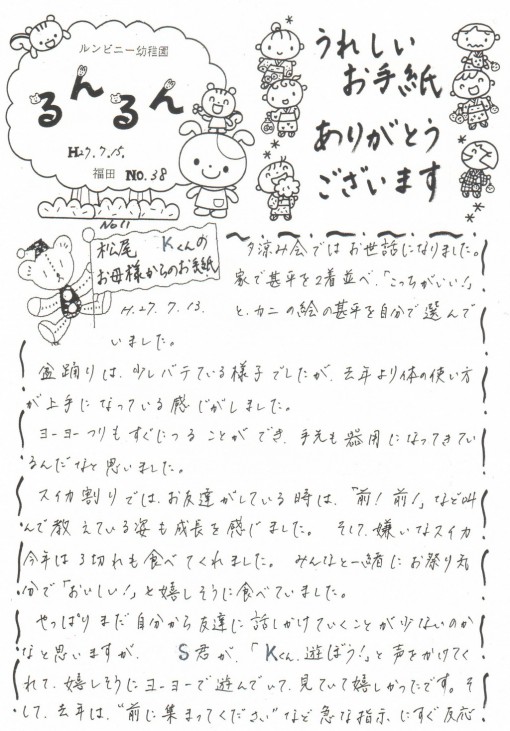 ルンビニー幼稚園
るんるん
H27.7.15.
福田 No.38
うれしい
お手紙
ありがとう
ございます
No11
松尾 Kくんの
お母様からのお手紙
H.27.7.13.
夕涼み会ではお世話になりました。
家で甚平を2着並べ、「こっちがいい!」
と、カニの絵の甚平を自分で選んで
いました。
盆踊りは、少しバテている様子でしたが、去年より体の使い方
が上手になっている感じがしました。
ヨーヨーつりもすぐにつることができ、手先も器用になってきてい
るんだなと思いました。
スイカ割りでは、お友達がしている時は、「前!前!」など叫
んで教えている姿も成長を感じました。そして、嫌いなスイカ
今年は3切れも食べてくれました。みんなと一緒にお祭り気
分で「おいしい!」と嬉しそうに食べていました。
やっぱりまだ自分から友達に話しかけていくことが少ないのか
なと思いますが、 S君が、「Kくん、遊ぼう!」と声をかけてく
れて、嬉しそうにヨーヨーで遊んでいて、見ていて嬉しかったです。そ
して、去年は、"前に集まってください"など急な指示にすぐ反応